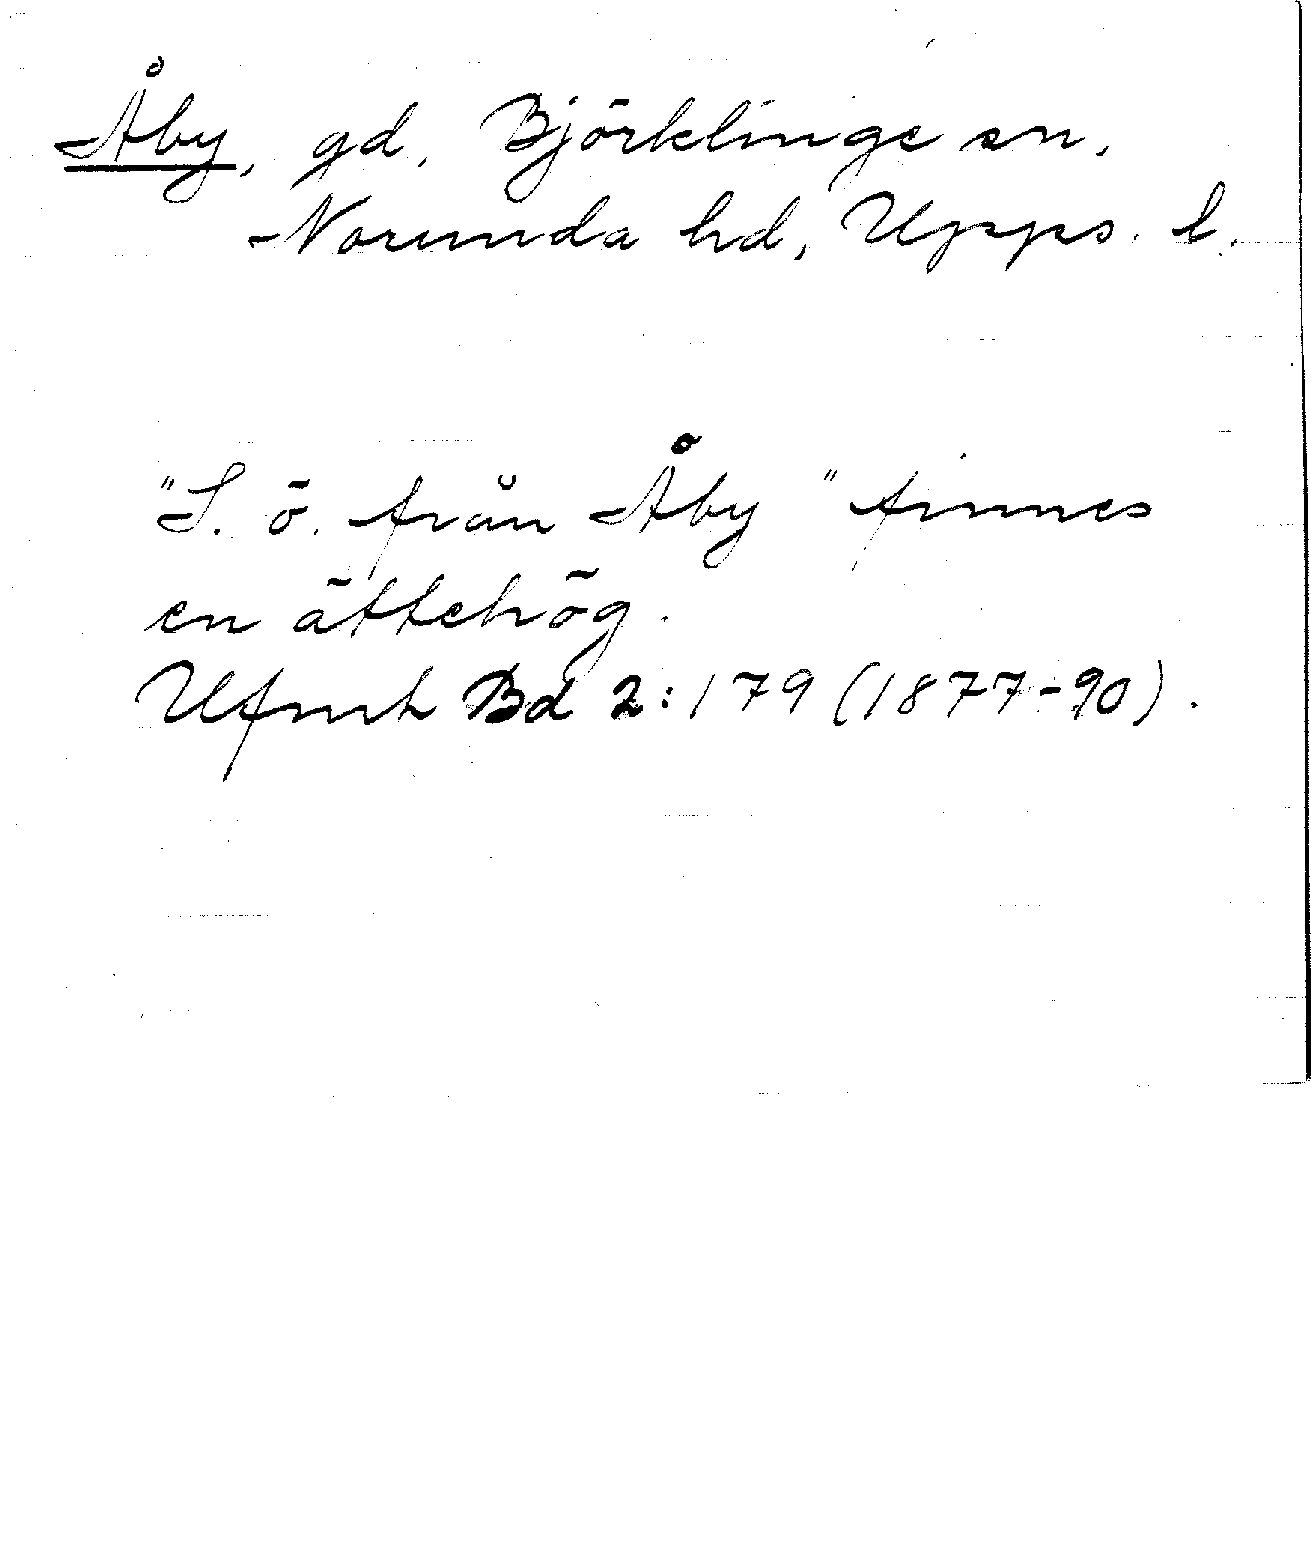 Åby, gd, Björklinge sn,
Norunda hd, Upps. l.
"S. ö. från Åby" finnes
en ättehög.
Ufmh Bd 2:179 (1877-90).